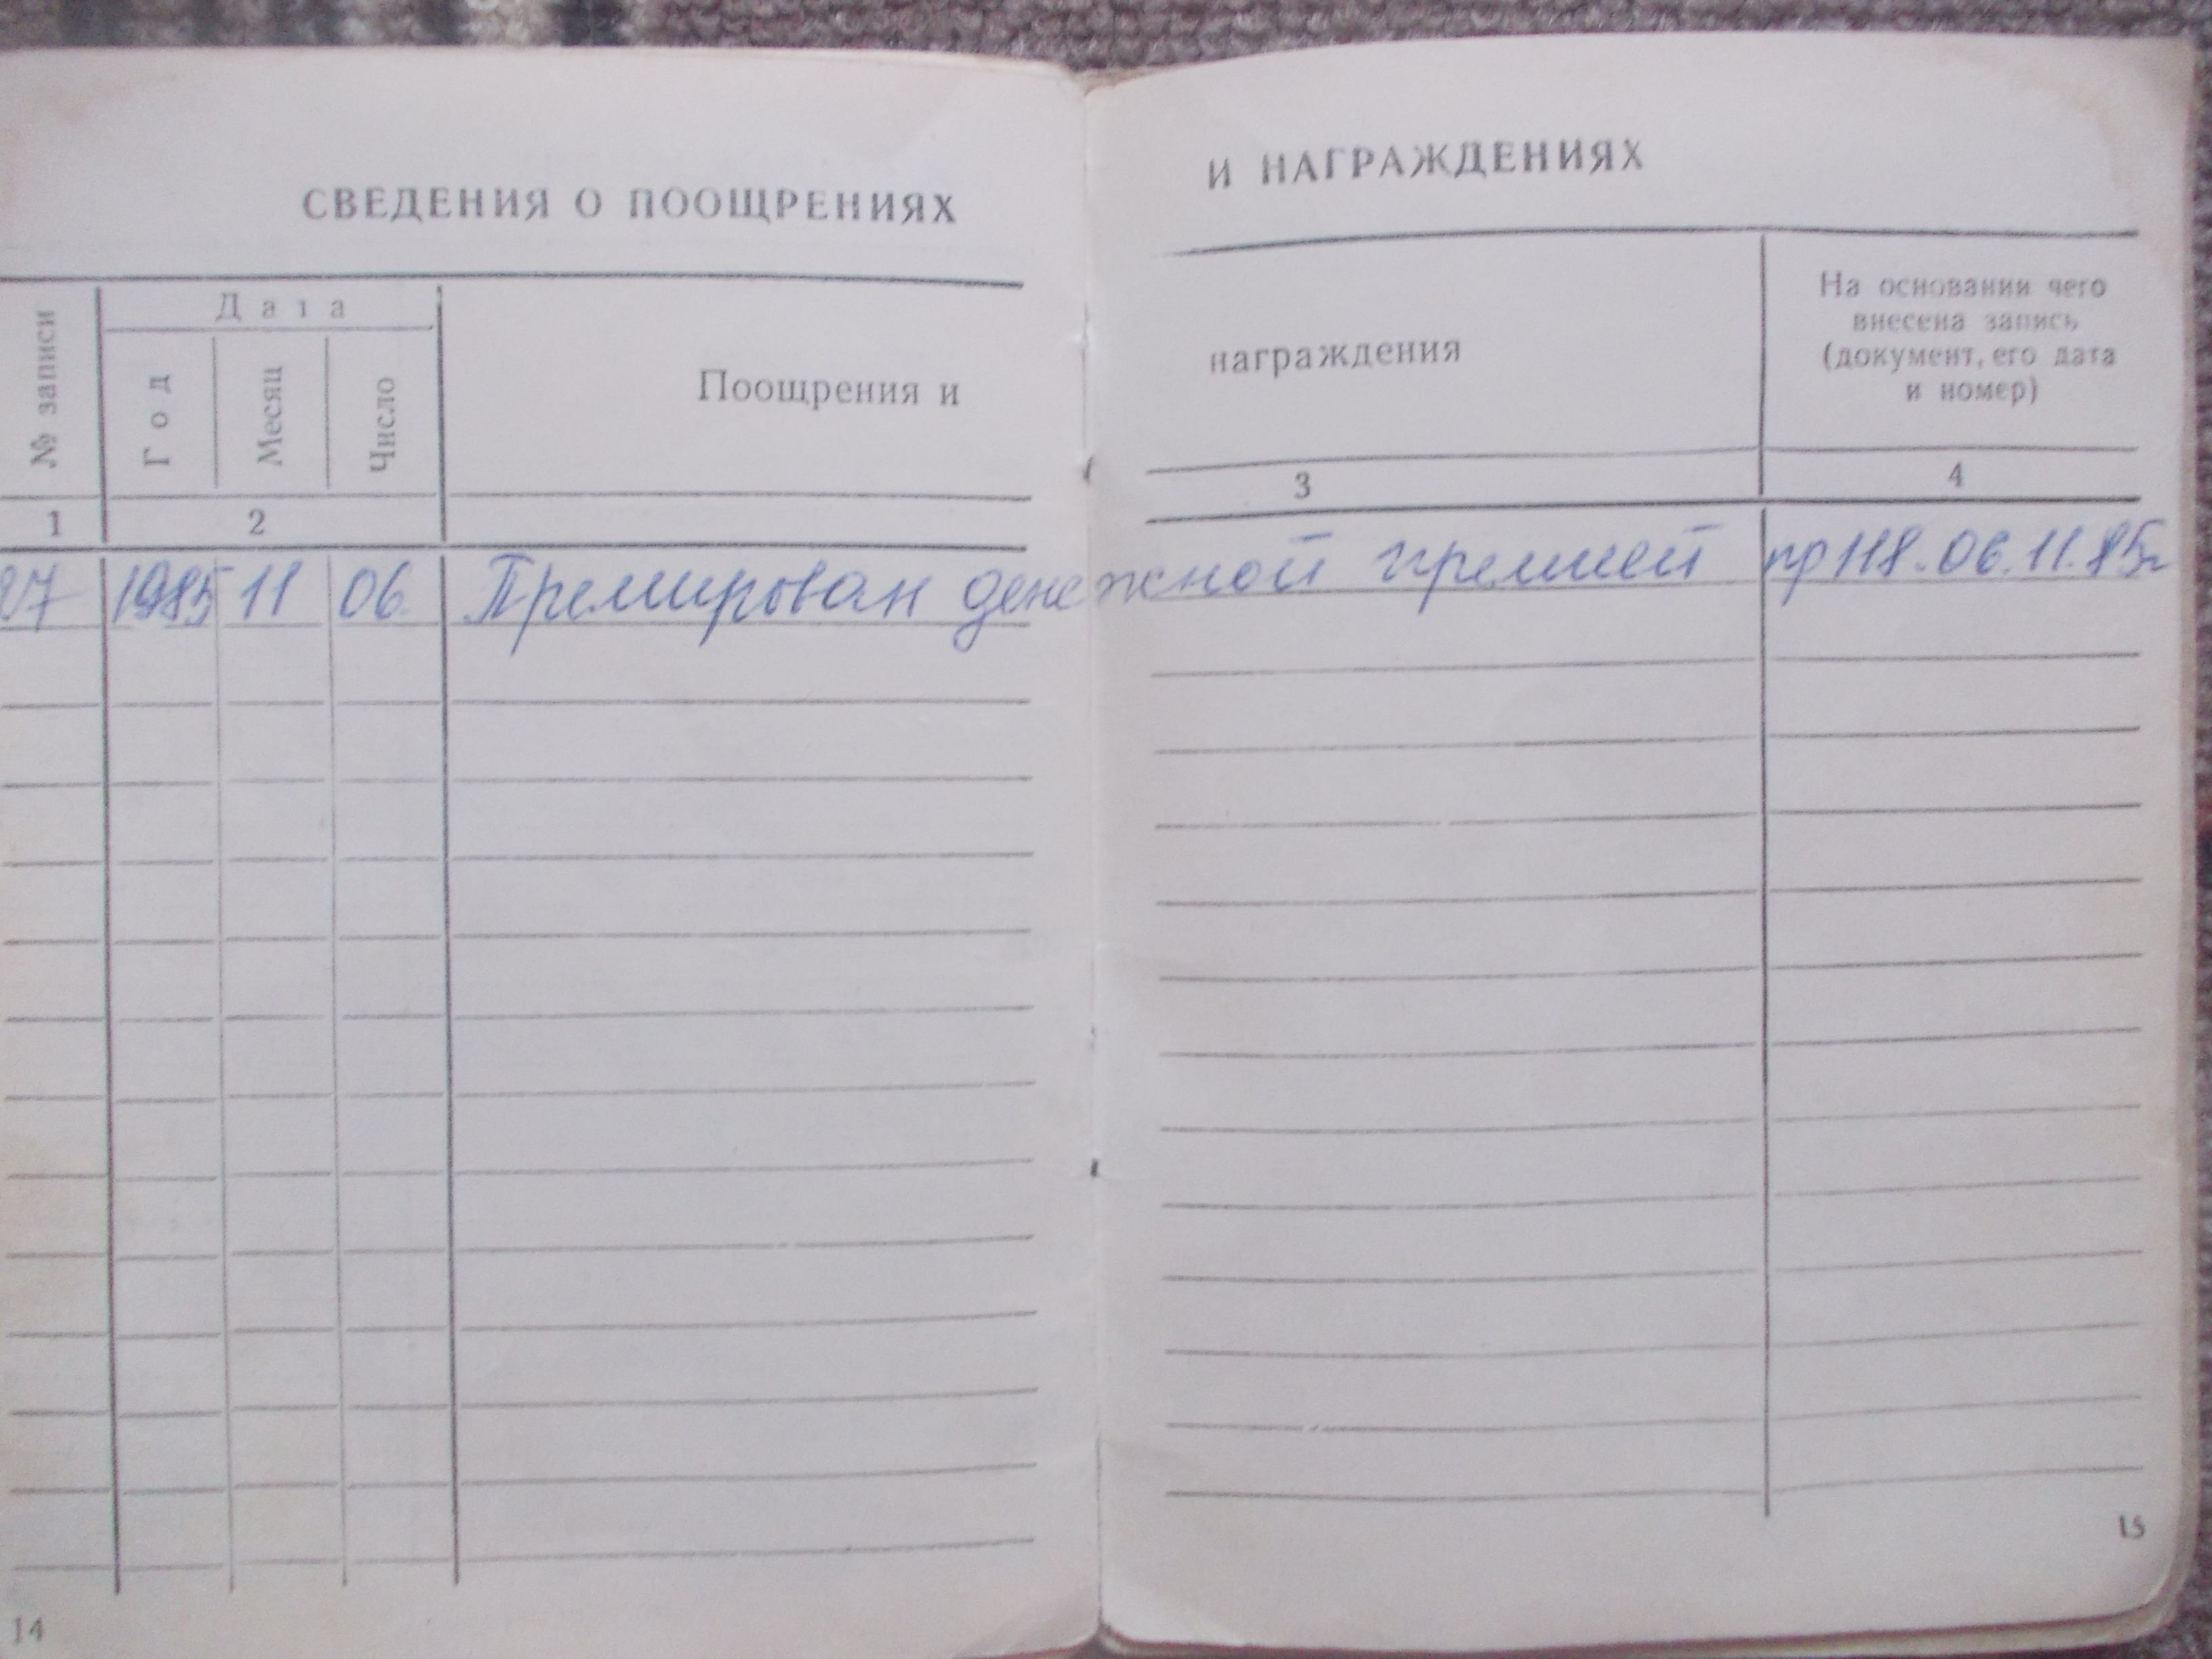 СВЕДЕНИЯ О ПООЩРЕНИЯХ И НАГРАЖДЕНИЯХ
№ записи
Дата
Год
Месяц
Число
Поощрения и награждения
На основании чего
внесена запись
(документ, его дата
и номер)
1 2 3 4
1985 11 06. Премирован денежной премией пр 118. 06.11.85г
14
15